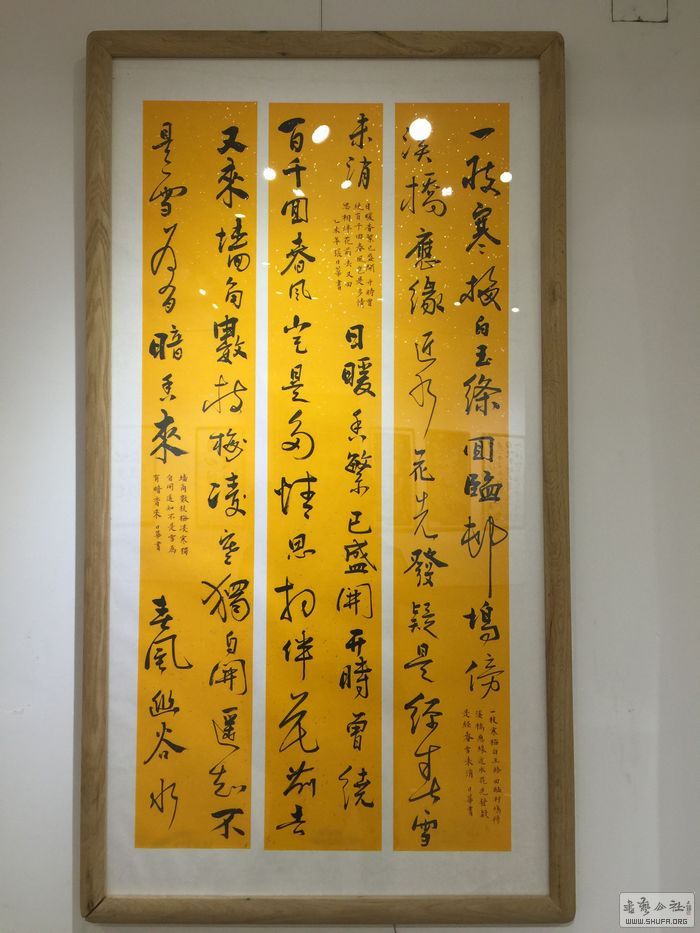 一枝寒梅白玉條回臨邨塢傍
一枝寒梅白玉條回臨村塢傍
溪橋應緣近水花先發疑
是經春雪未消 日華書
溪橋應緣近水花先發疑是經春雪
未消
日暖香繁已盛開 开時曾
繞百千回春風豈是多情
思相伴花前去又回
乙未年張日華書
日暖香繁已盛開开時曾繞
百千回春風豈是多情思相伴花前去
又來墻角數枝梅凌寒獨自開遥知不
是雪為有暗香來
墙角數枝梅凌寒獨
自開遥知不是雪為
有暗香來 日華書
春風幽谷水
書藝公社
WWW.SHUFA.ORG